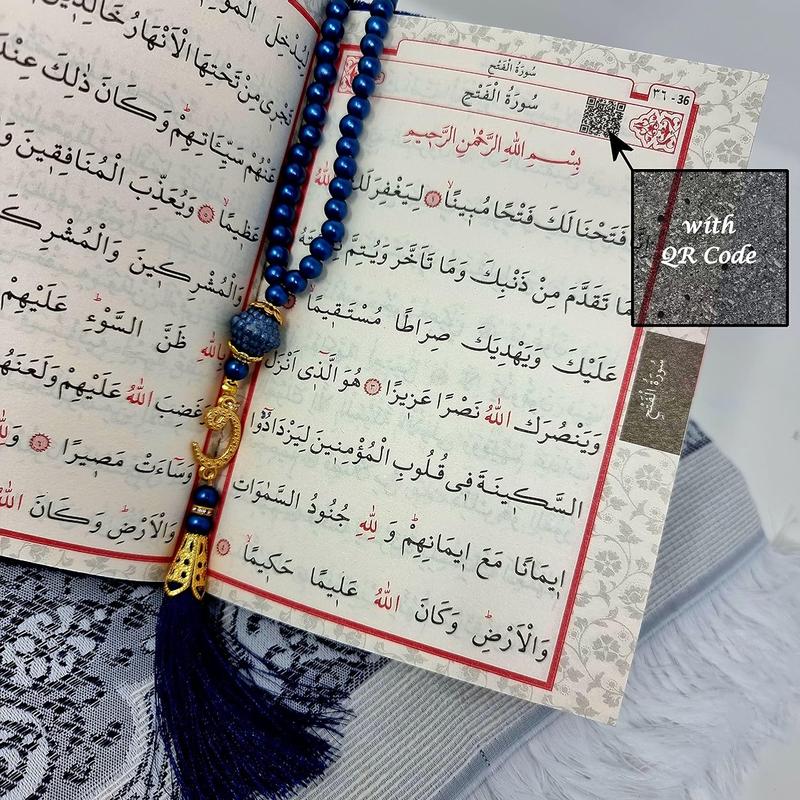 سُورَةُ الْفَتْحِ
٣٦ - 36
سُورَةُ الْفَتْحِ
بِسْمِ اللهِ الرَّحْمٰنِ الرَّحٖيمِ
فَتَحْنَا لَكَ فَتْحًا مُبٖينًا ١ لِيَغْفِرَ لَكَ اللهُ
مَا تَقَدَّمَ مِنْ ذَنْبِكَ وَمَا تَاَخَّرَ وَيُتِمَّ
عَلَيْكَ وَيَهْدِيَكَ صِرَاطًا مُسْتَقٖيمًا
وَيَنْصُرَكَ اللهُ نَصْرًا عَزٖيزًا ٣ هُوَ الَّذٖى اَنْزَلَ
السَّكٖينَةَ فٖى قُلُوبِ الْمُؤْمِنٖينَ لِيَزْدَادُوا
اٖيمَانًا مَعَ اٖيمَانِهِمْ وَ لِلّٰهِ جُنُودُ السَّمٰوَاتِ
وَالْاَرْضِ وَكَانَ اللهُ عَلٖيمًا حَكٖيمًا ٤
سُورَةُ الْفَتْحِ
with
QR Code
لِيُدْخِلَ
تَجْرٖى مِنْ تَحْتِهَا الْاَنْهَارُ خَالِدٖينَ
عَنْهُمْ سَيِّـَٔاتِهِمْ وَكَانَ ذٰلِكَ عِنْدَ
عَظٖيمًا ٥ وَيُعَذِّبَ الْمُنَافِقٖينَ
وَالْمُشْرِكٖينَ
بِاللهِ ظَنَّ السَّوْءِ عَلَيْهِمْ
وَغَضِبَ اللهُ عَلَيْهِمْ وَلَعَنَهُمْ
وَسَٓاءَتْ مَصٖيرًا ٦
وَالْاَرْضِ وَكَانَ اللهُ